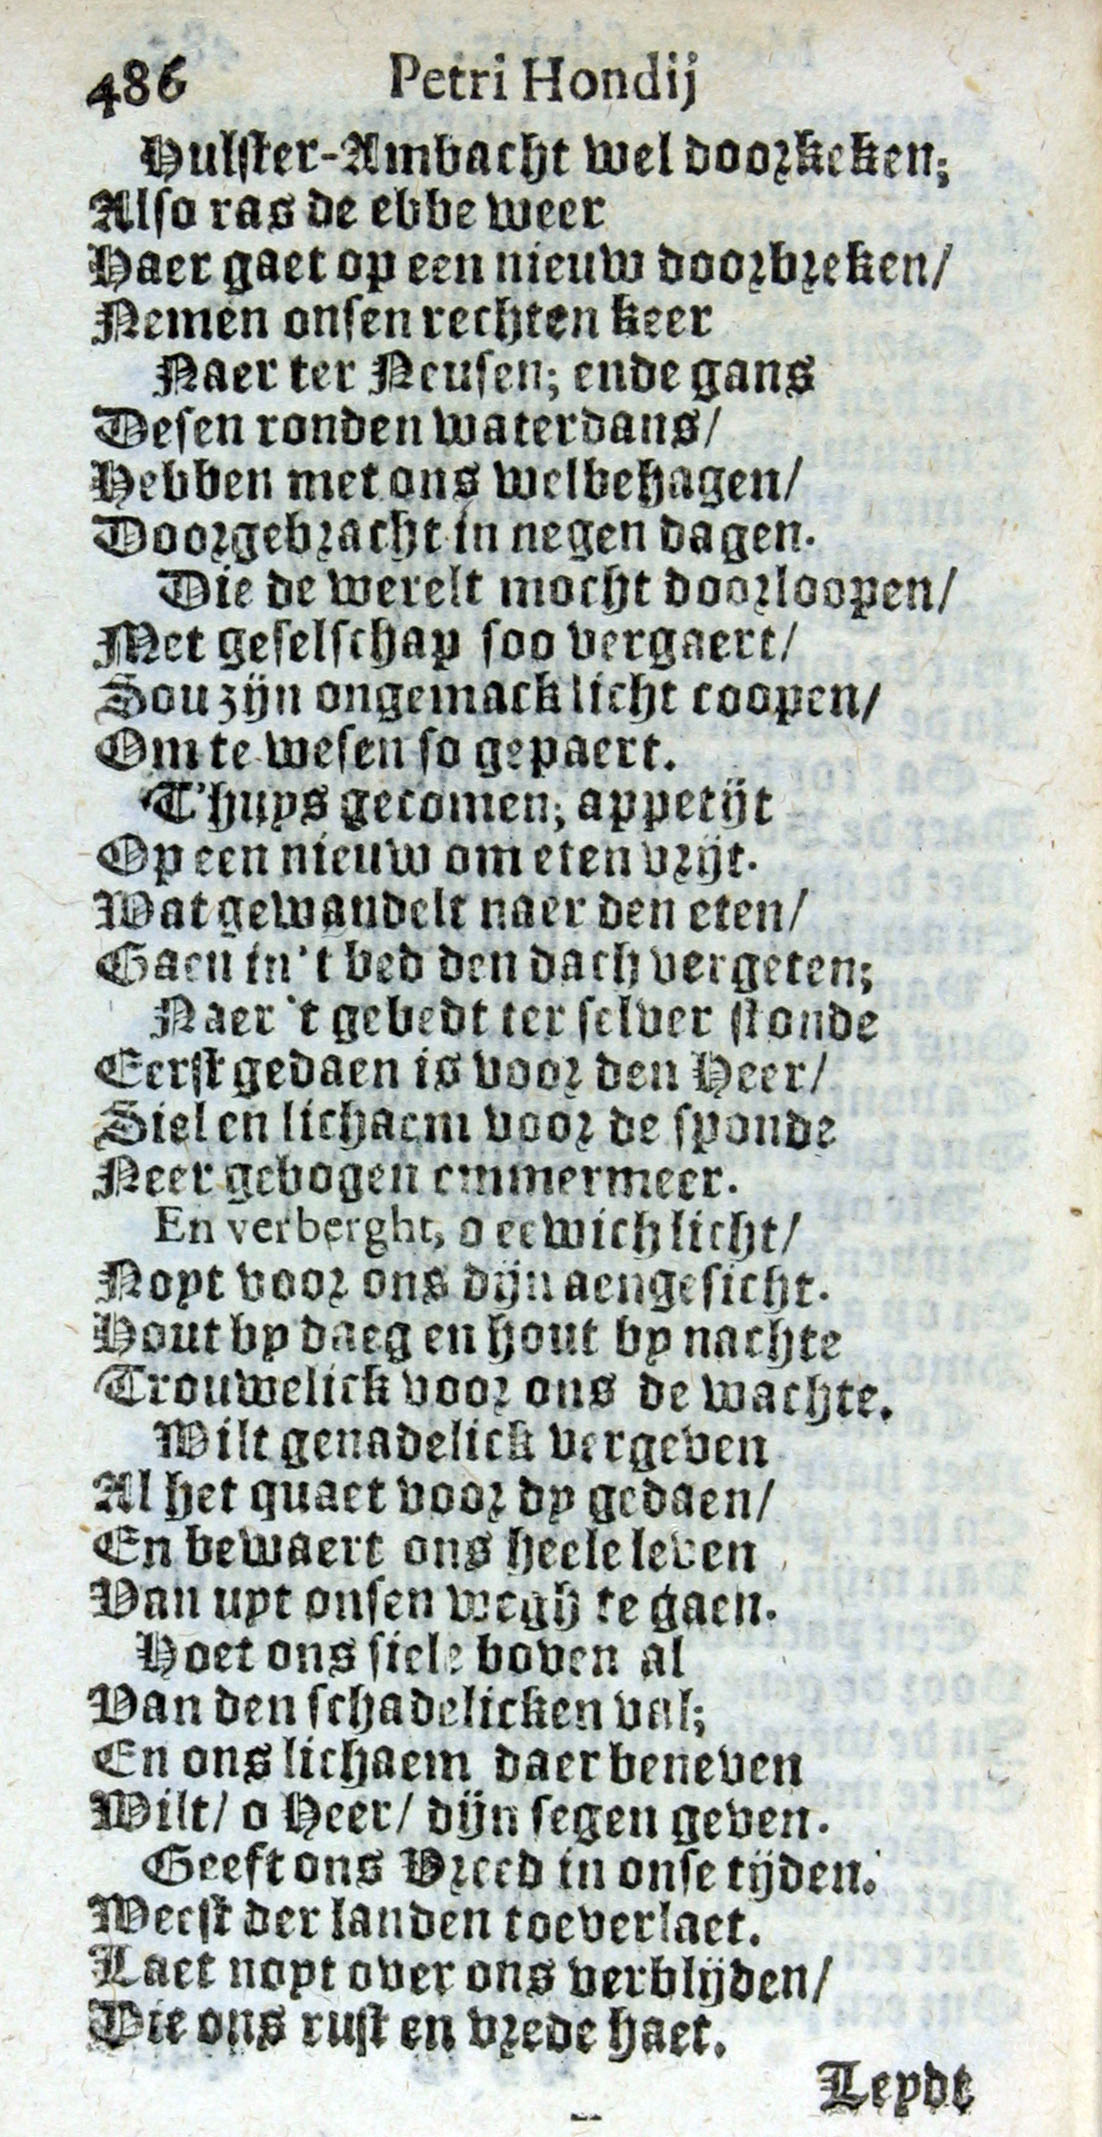 486 Petri Hondij
Hulster-Ambacht wel doorkeken;
Also ras de ebbe weer
Haer gaet op een nieuw doorbreken/
Nemen onsen rechten keer
Naer ter Neusen; ende gans
Desen ronden waterdans/
Hebben met ons welbehagen/
Doorgebracht in negen dagen.
Die de werelt mocht doorloopen/
Met geselschap soo vergaert/
Sou zijn ongemack licht coopen/
Om te wesen so gepaert.
T'huys gecomen; appetijt
Op een nieuw om eten vrijt.
Wat gewandelt naer den eten/
Gaen in't bed den dach vergeten;
Naer 't gebedt ter selver stonde
Eerst gedaen is voor den Heer/
Siel en lichaem voor de sponde
Neer gebogen emmermeer.
En verberght, o eewich licht/
Noyt voor ons dijn aengesicht.
Hout by daeg en hout by nachte
Trouwelick voor ons de wachte.
Wilt genadelick vergeven
Al het quaet voor dy gedaen/
En bewaert ons heele leven
Van uyt onsen wegh te gaen.
Hoet ons siele boven al
Van den schadelicken val;
En ons lichaem daer beneven
Wilt/ o Heer/ dijn segen geven.
Geeft ons Vreed in onse tijden.
Weest der landen toeverlaet.
Laet noyt over ons verblijden/
Die ons rust en vrede haet.
Leydt